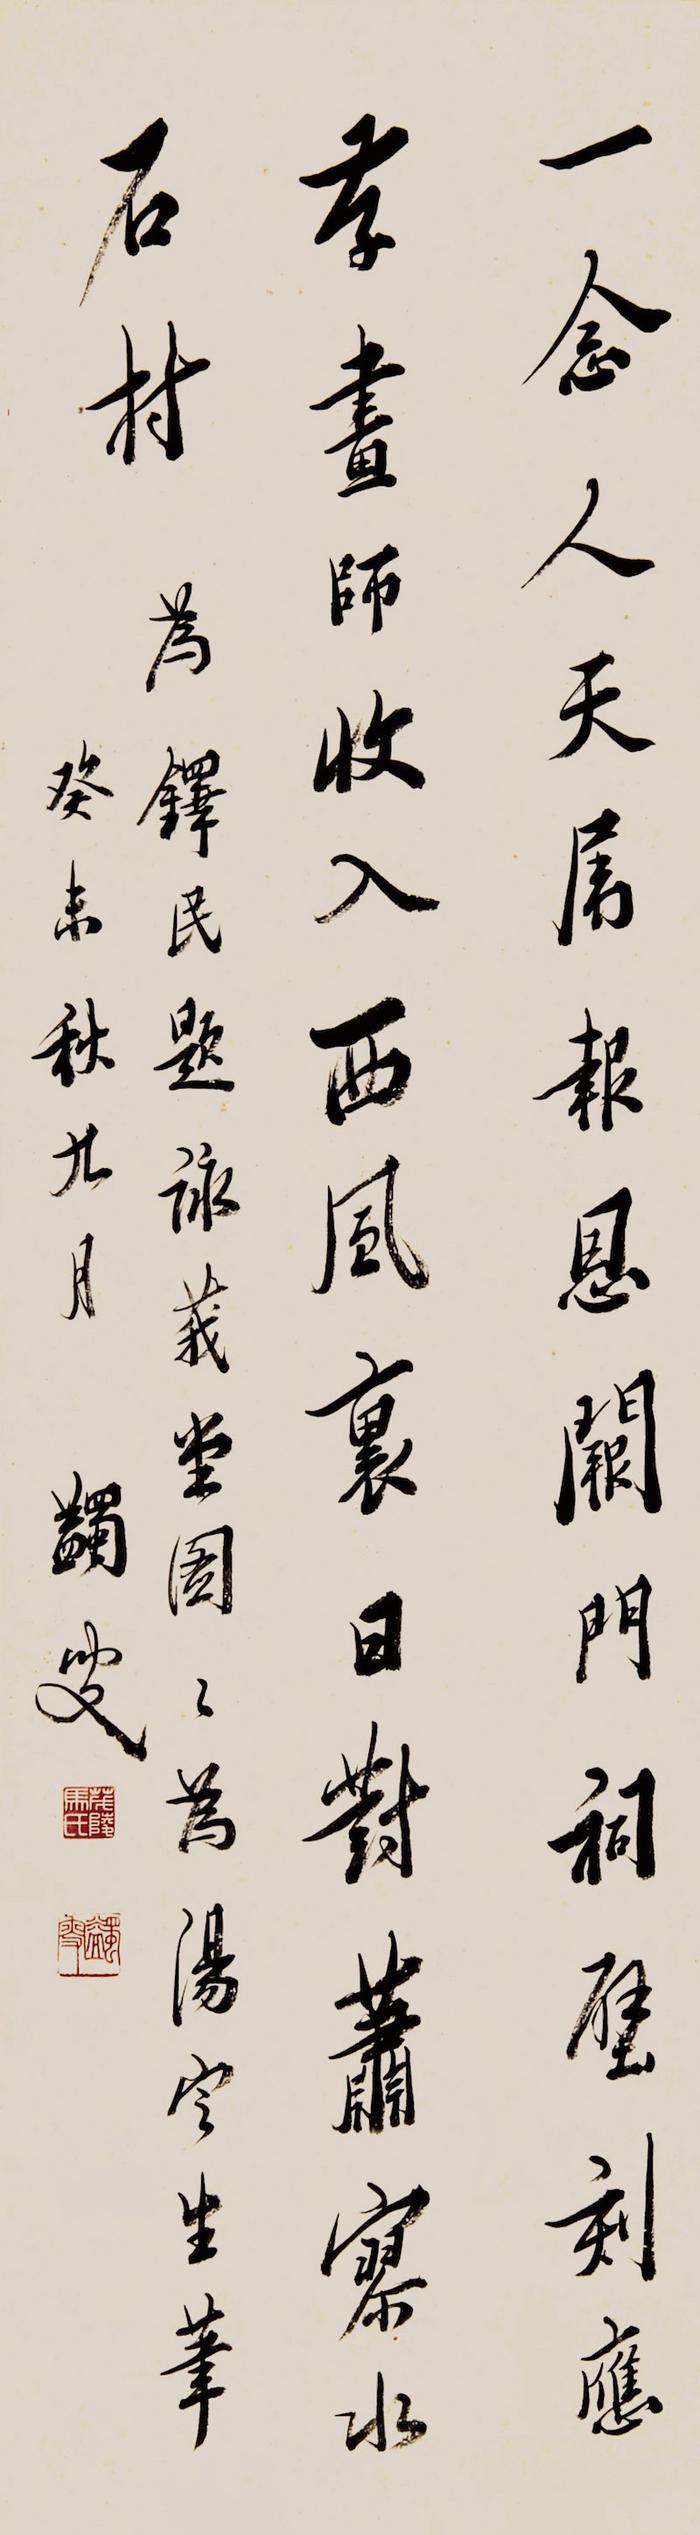 一念人天属報恩闕門祠壁刻應
存畫師收入西風裏日對蕭寥水
石村
為鐸民題詠莪堂圖〻為湯定生筆
癸未秋九月 蠲叟
茂陵馬氏
蠲叟